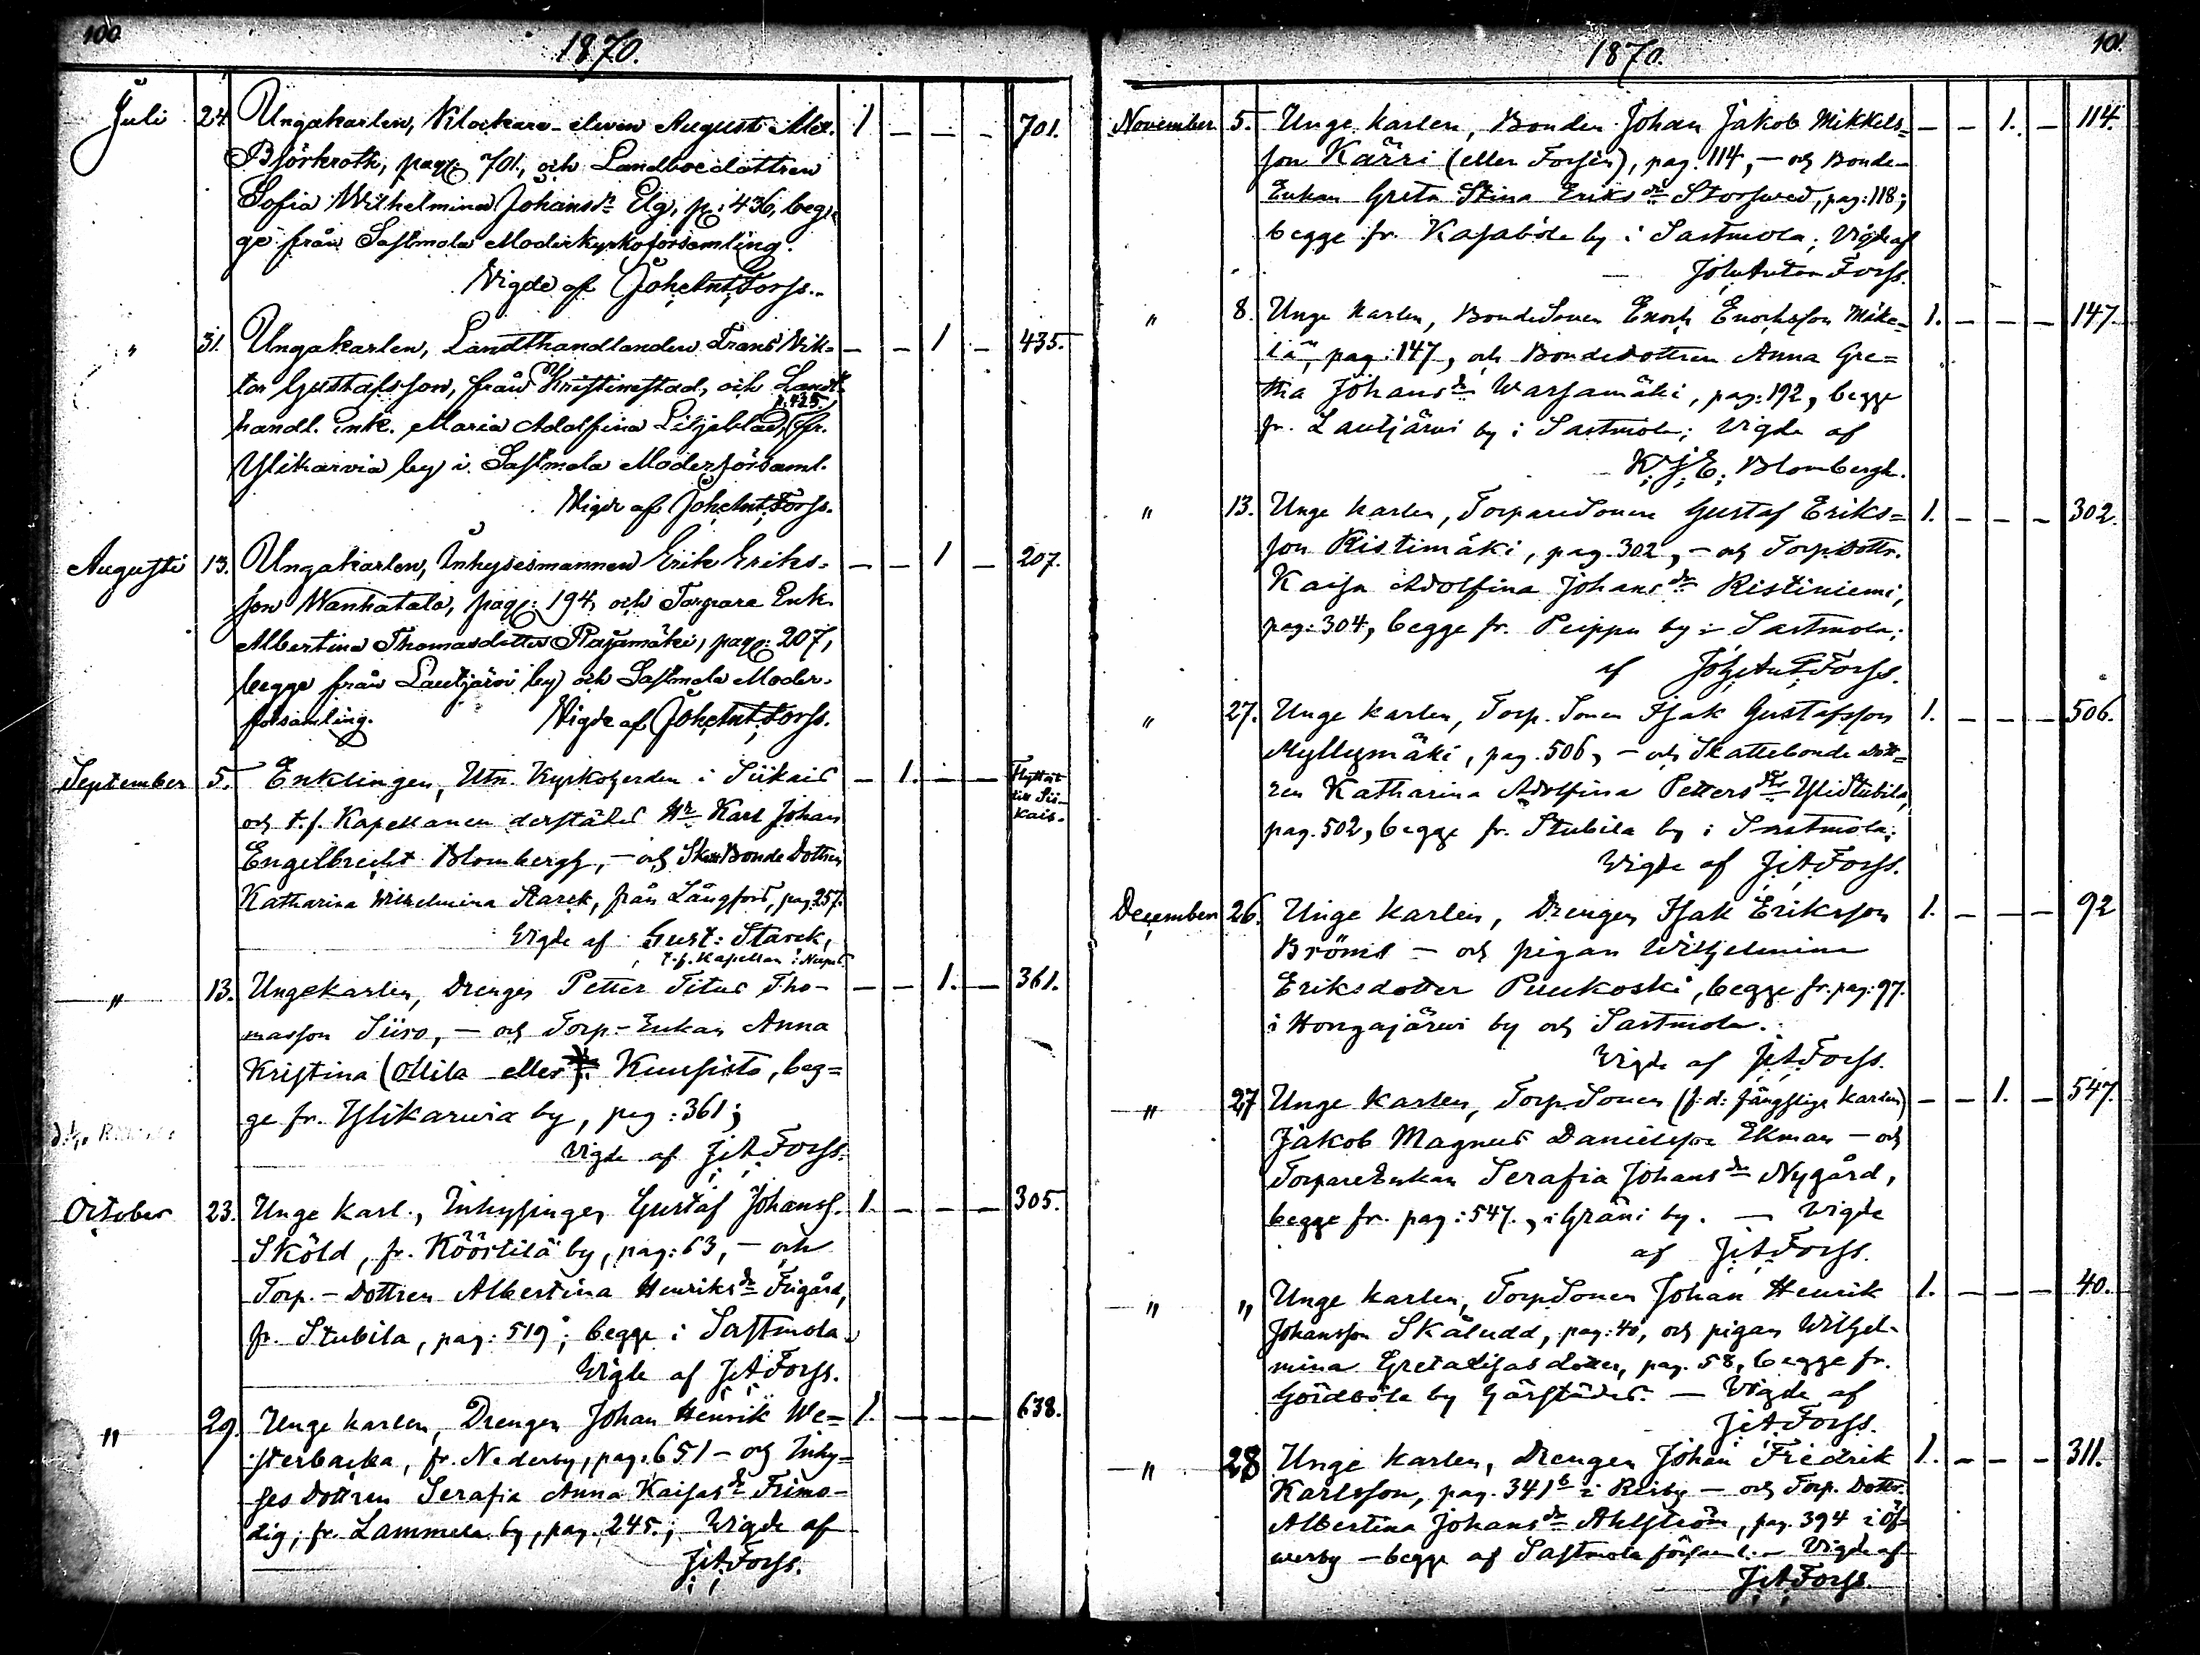 100
1870.
Juli 24. Ungakarlen, Klockare-eleven August Alex. 1 – – – 701.
Björkroth, pag: 701, och Landboedottren
Sofia Wilhelmina Johansdr Elg, p: 436, beg-
ge från Sastmola Moderkyrkoförsamling.
Vigde af Joh: Ant: Forss.
" 31. Ungakarlen, Landthandlanden Frans Vik- – – 1 – 435.
tor Gustafsson, från Kristinestad, och Landt-
p. 435,
handl. Enk. Maria Adolfina Liljeblad, fr.
Ylikarvia by i Sastmola Moderförsaml.
Vigde af Joh: Ant: Forss.
Augusti 13. Ungakarlen, Inhysesmannen Erik Eriks- – – 1 – 207.
son Wanhatalo, pag: 194, och Torpare Enk.
Albertina Thomasdotter Rajamäki, pag: 207,
begge från Lautjärvi by och Sastmola Moder-
församling. Vigde af Joh: Ant: Forss.
September 5. Enklingen, Utn. Kyrkoherden i Siikais – 1. – – Flyttat
till Sii-
kais.
och t.f. Kapellanen derstädes Hr Karl Johan
Engelbrecht Blombergh, – och Skatt Bonde Dottren
Katharina Wilhelmina Starck, från Långfors, pag. 257.
Vigde af Gust: Starck,
t.f. Kapellan i
" 13. Ungekarlen, Drengen Petter Titus Tho- – – 1. – 361.
masson Siiro, – och Torp.-Enkan Anna
Kristina (Ollila eller) Kuusisto, beg=
ge fr. Ylikarvia by, pag: 361;
Vigde af J:A:Forss.
October 23. Unge karl., Inhysingen Gustaf Johanss. 1. – – – 305.
Sköld, fr. Köörtilä by, pag: 63, – och
Torp.-Dottren Albertina Henriksdr Frigård,
fr. Stubila, pag: 519; begge i Sastmola.
Vigde af J:A:Forss.
" 29. Unge karlen, Drengen Johan Henrik We= 1. – – – 638.
sterbacka, fr. Nederby, pag. 651 – och Inhy=
ses Dottren Serafia Anna Kaisasdr Frimo-
dig, fr. Lammela by, pag. 245.; Vigde af
J:A:Forss.
101
1870.
November 5. Unge karlen, Bonden Johan Jakob Mikkels= – – 1. – 114.
son Kärri (eller Forsén), pag. 114, – och Bonde-
Enkan Greta Stina Eriksdr Storswed, pag: 118;
begge fr. Kasaböle by i Sastmola; Vigde af
Joh: Anton Forss.
" 8. Unge karlen, Bonde Sonen Enoch Enochsson Mäke= 1. – – – 147.
lä, pag: 147, och Bondedottren Anna Gre=
tha Johansdr Warsamäki, pag: 192, begge
fr. Lautjärvi by i Sastmola; Vigde af
K: J: E: Blombergh.
" 13. Unge karlen, Torpare Sonen Gustaf Eriks= 1. – – – 302.
son Ristimäki, pag. 302, – och Torp.Dottr.
Kaisa Adolfina Johansdr Ristiniemi,
pag: 304, begge fr. Peippu by i Sastmola;
af Joh: Ant: Forss.
" 27. Unge karlen, Torp. Sonen Isak Gustafsson 1. – – – 506.
Myllymäki, pag. 506, – och Skattebonde Dott=
ren Katharina Adolfina Pettersdr YliStubila,
pag. 502, begge fr. Stubila by i Sastmola;
Vigde af J:A:Forss.
December 26. Unge karlen, Drengen Isak Eriksson 1. – – – 92
Bröms – och pigan Wilhelmina
Eriksdotter Puukoski, begge fr. pag: 97.
i Hongajärvi by och Sastmola.
Vigde af J:A:Forss.
" 27 Unge karlen, Torp.Sonen (f.d. fängslige karlen) – – 1. – 547.
Jakob Magnus Danielsson Ekman – och
TorpareEnkan Serafia Johansdr Nygård,
begge fr. pag: 547., i Gräni by. – Vigde
af J:A:Forss.
" " Unge karlen, TorpSonen Johan Henrik 1. – – – 40.
Johansson Skäludd, pag: 40, och pigan Wilhel-
mina Gretalisasdotter, pag. 58, begge fr.
Gördböle by härstädes. – Vigde af
J:A:Forss.
" 28 Unge karlen, Drengen Johan Fredrik 1. – – – 311.
Karlsson, pag. 341b i Reiby – och Torp. Dottr.
Albertina Johansdr Ahlström, pag. 394 i Öf-
werby – begge af Sastmola församl. – Vigde af
J:A:Forss.